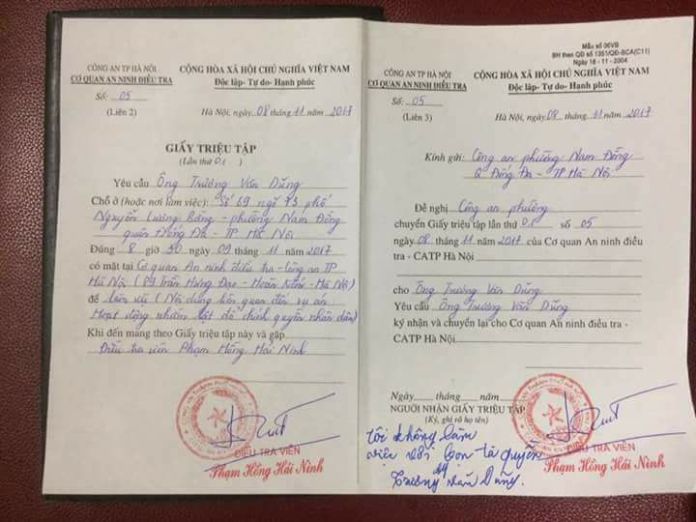 CÔNG AN TP HÀ NỘI
CƠ QUAN AN NINH ĐIỀU TRA
Số: 05
(Liên 2)
CỘNG HÒA XÃ HỘI CHỦ NGHĨA VIỆT NAM
Độc lập- Tự do- Hạnh phúc
Hà Nội, ngày 08 tháng 11 năm 2017
GIẤY TRIỆU TẬP
(Lần thứ 01)
Yêu cầu Ông Trương Văn Dũng
Chỗ ở (hoặc nơi làm việc): Số 69 ngõ 93 phố
Nguyễn Lương Bằng - phường Nam Đồng
quận Đống Đa - TP Hà Nội
Đúng 8 giờ 30 ngày 09 tháng 11 năm 2017
có mặt tại Cơ quan An ninh điều tra - Công an TP
Hà Nội (89 Trần Hưng Đạo - Hoàn Kiếm - Hà Nội)
để làm việc (Nội dung liên quan đến vụ án
Hoạt động nhằm lật đổ chính quyền nhân dân)
Khi đến mang theo Giấy triệu tập này và gặp
Điều tra viên Phạm Hồng Hải Ninh
ĐIỀU TRA VIÊN
Phạm Hồng Hải Ninh
Mẫu số 06VB
BH theo QĐ số 1351/QĐ-BCA(C11)
Ngày 18 - 11 - 2004
CÔNG AN TP HÀ NỘI
CƠ QUAN AN NINH ĐIỀU TRA
Số: 05
(Liên 3)
CỘNG HÒA XÃ HỘI CHỦ NGHĨA VIỆT NAM
Độc lập- Tự do- Hạnh phúc
Hà Nội, ngày 08 tháng 11 năm 2017
Kính gửi: Công an phường Nam Đồng
Q Đống Đa - TP Hà Nội
Đề nghị Công an phường
chuyển Giấy triệu tập lần thứ 01 số 05
ngày 08 tháng 11 năm 2017 của Cơ quan An ninh điều
tra - CATP Hà Nội
cho Ông Trương Văn Dũng
Yêu cầu Ông Trương Văn Dũng
ký nhận và chuyển lại cho Cơ quan An ninh điều tra -
CATP Hà Nội
Ngày tháng năm
NGƯỜI NHẬN GIẤY TRIỆU TẬP
(Ký, ghi rõ họ tên)
tôi không làm
việc với bọn tà quyền
Trương Văn Dũng
ĐIỀU TRA VIÊN
Phạm Hồng Hải Ninh